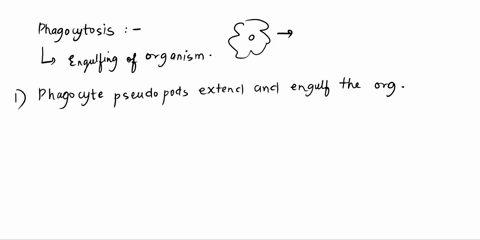 Phagocytosis :-
↳ Engulfing of organism.
1) Phagocyte pseudopods extend and engulf the org.